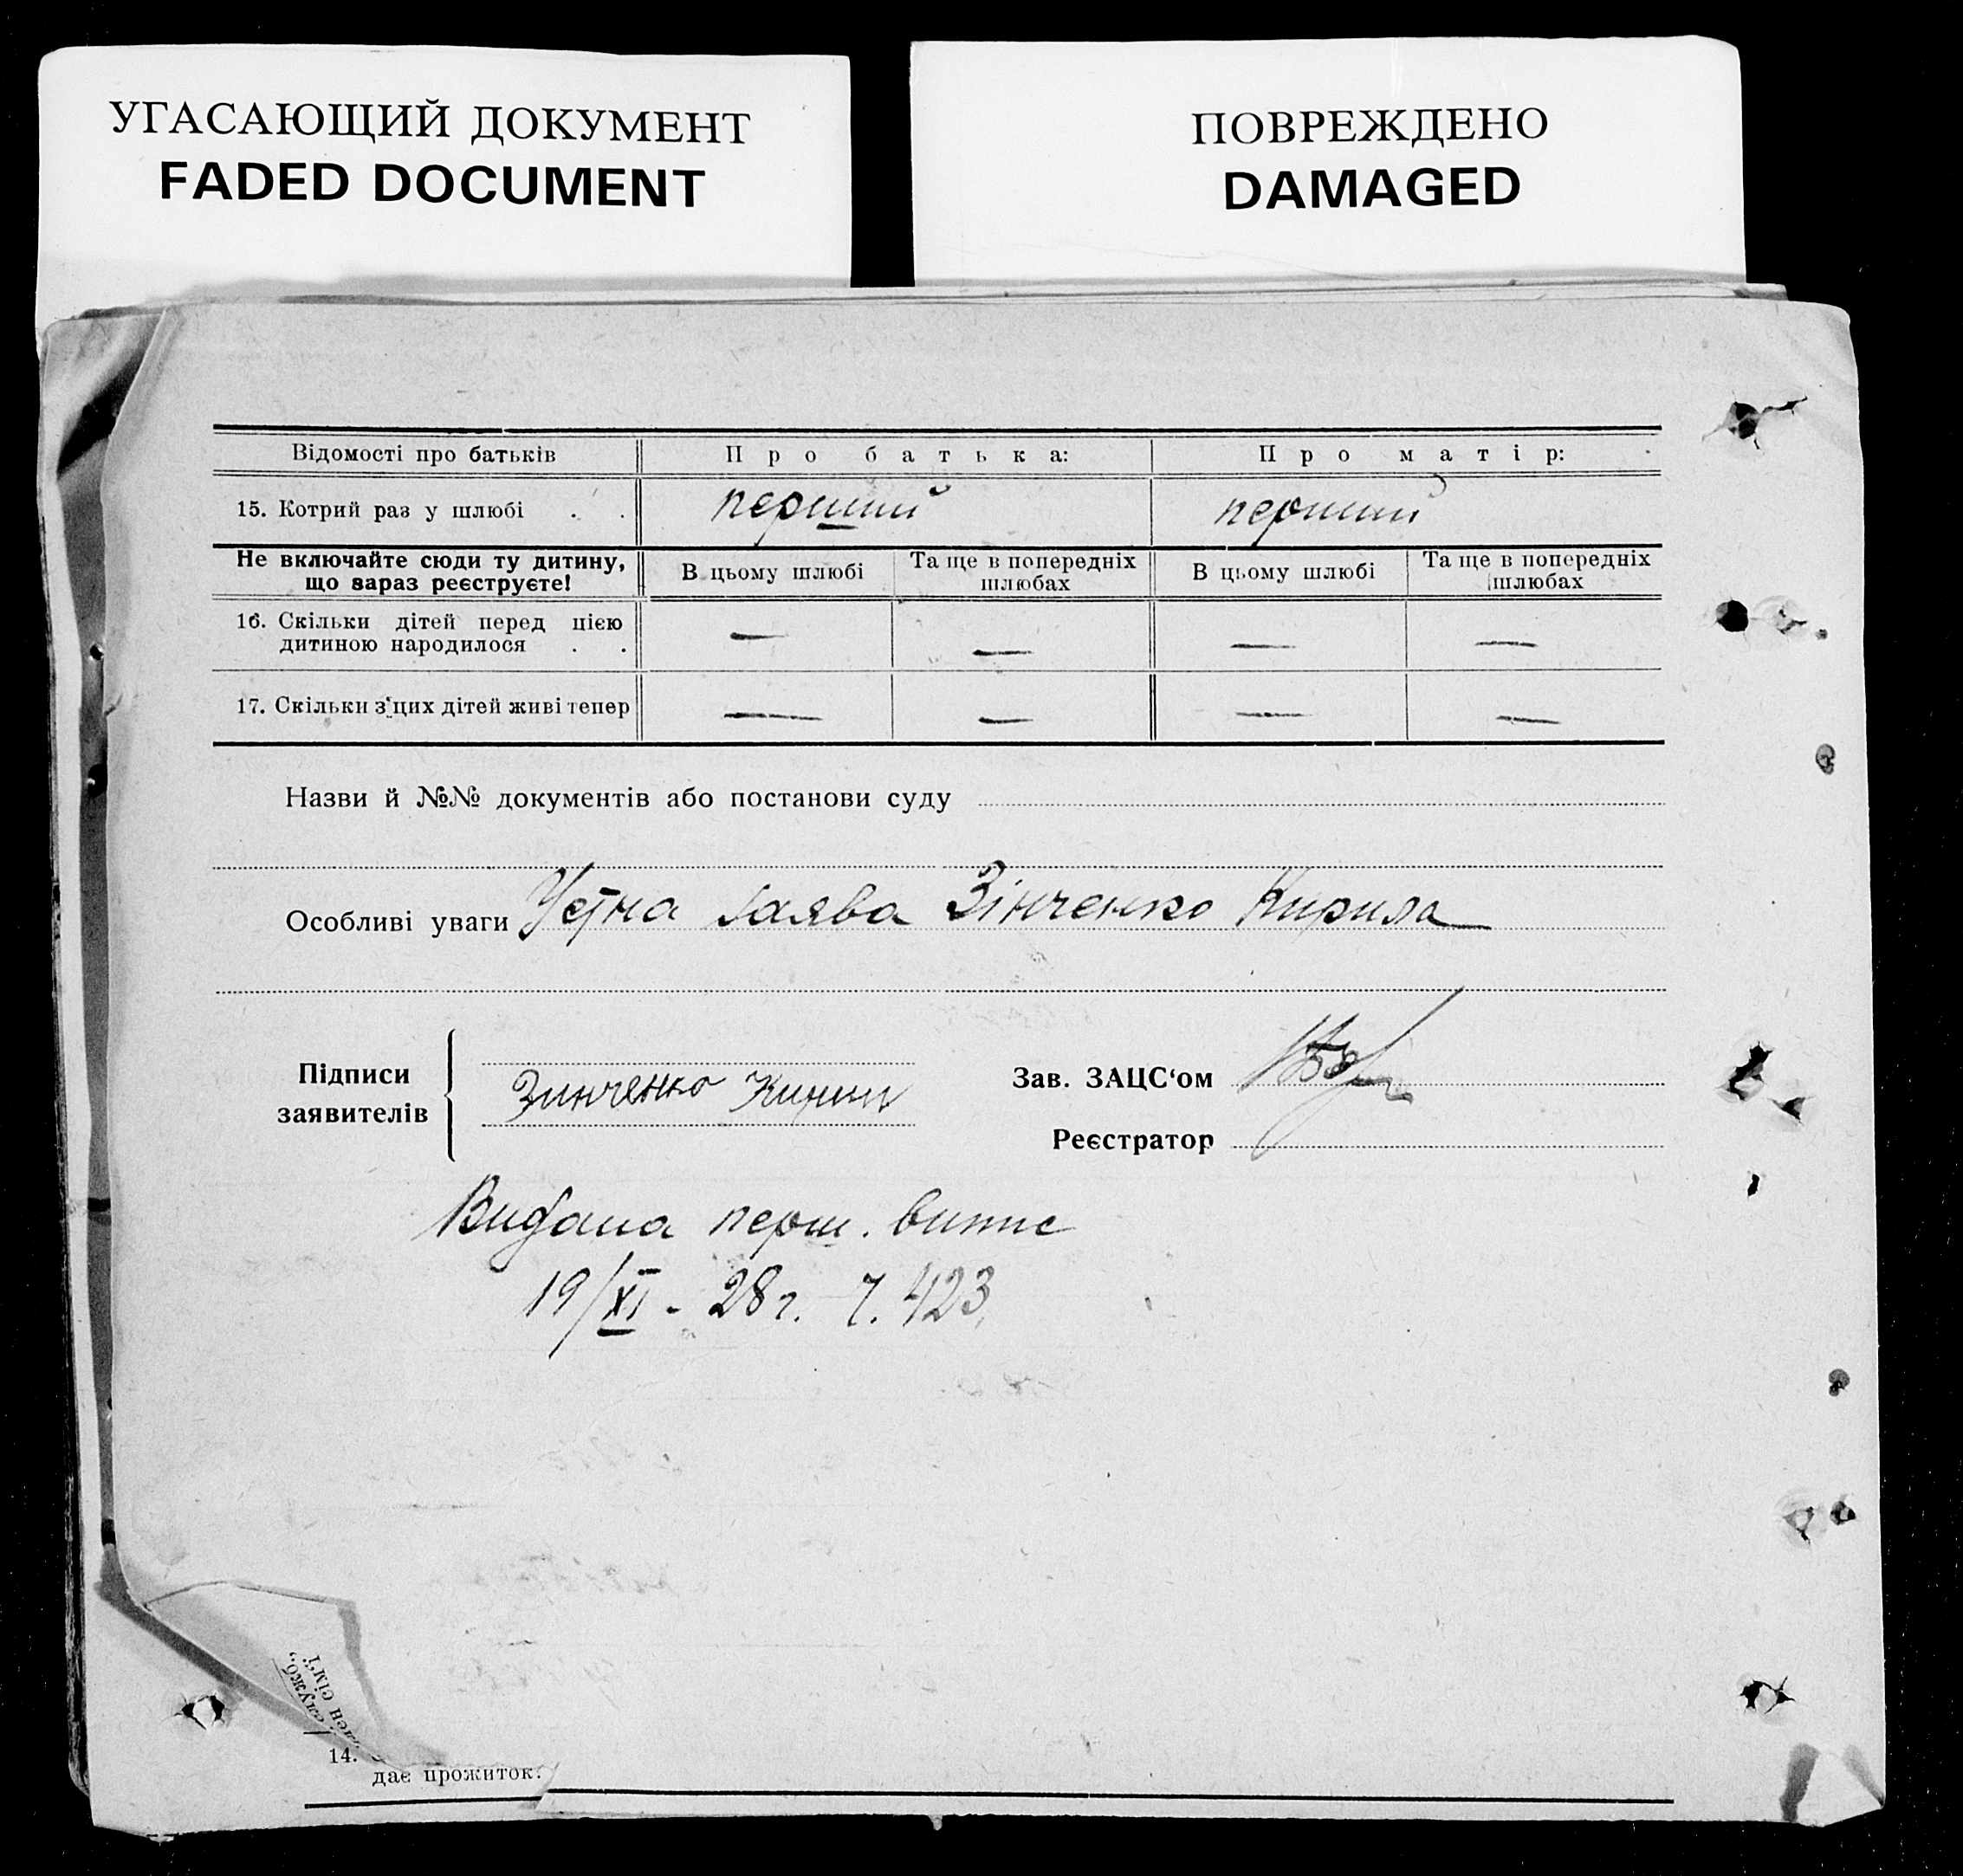 УГАСАЮЩИЙ ДОКУМЕНТ
FADED DOCUMENT
ПОВРЕЖДЕНО
DAMAGED
Відомості про батьків Про батька: Про матір:
15. Котрий раз у шлюбі . . перший перший
Не включайте сюди ту дитину, що вараз реєструєте! В цьому шлюбі Та ще в попередніх шлюбах В цьому шлюбі Та ще в попередніх шлюбах
16. Скільки дітей перед цією дитиною народилося . . — — — —
17. Скільки з'цих дітей живі тепер — — — —
Назви й №№ документів або постанови суду
Особливі уваги Устна заява Зінченко Кирила
Підписи заявителів Зинченко Кирил
Зав. ЗАЦС‘ом
Реєстратор
Видана перш. витис
19/XI - 28 г. Ч. 423
служб.,
член сім'ї
14.
дає прожиток.